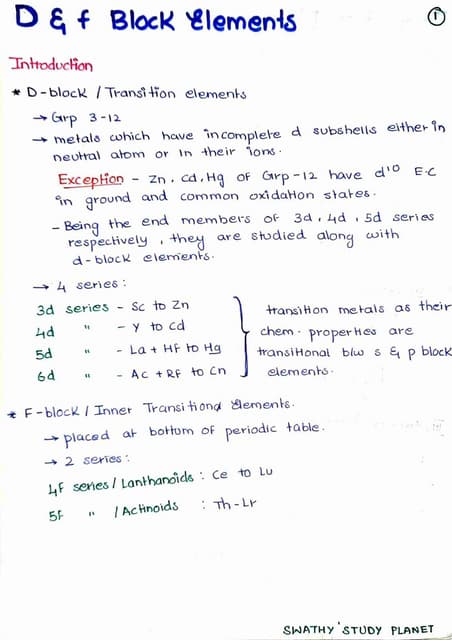 D & f Block Elements
1
Introduction
* D-block / Transition elements
→ Grp 3-12
→ metals which have incomplete d subshells either in
neutral atom or in their ions.
Exception - Zn, Cd, Hg of Grp-12 have d¹⁰ E.C
in ground and common oxidation states.
- Being the end members of 3d, 4d, 5d series
respectively, they are studied along with
d-block elements.
→ 4 series:
3d series - Sc to Zn
4d " - Y to Cd
5d " - La + Hf to Hg
6d " - Ac + Rf to Cn
transition metals as their
chem. properties are
transitional b/w s & p block
elements.
* F-block / Inner Transitiond Elements.
→ placed at bottom of periodic table.
→ 2 series:
4f series / Lanthanoids : Ce to Lu
5f " / Actinoids : Th-Lr
SWATHY'STUDY PLANET